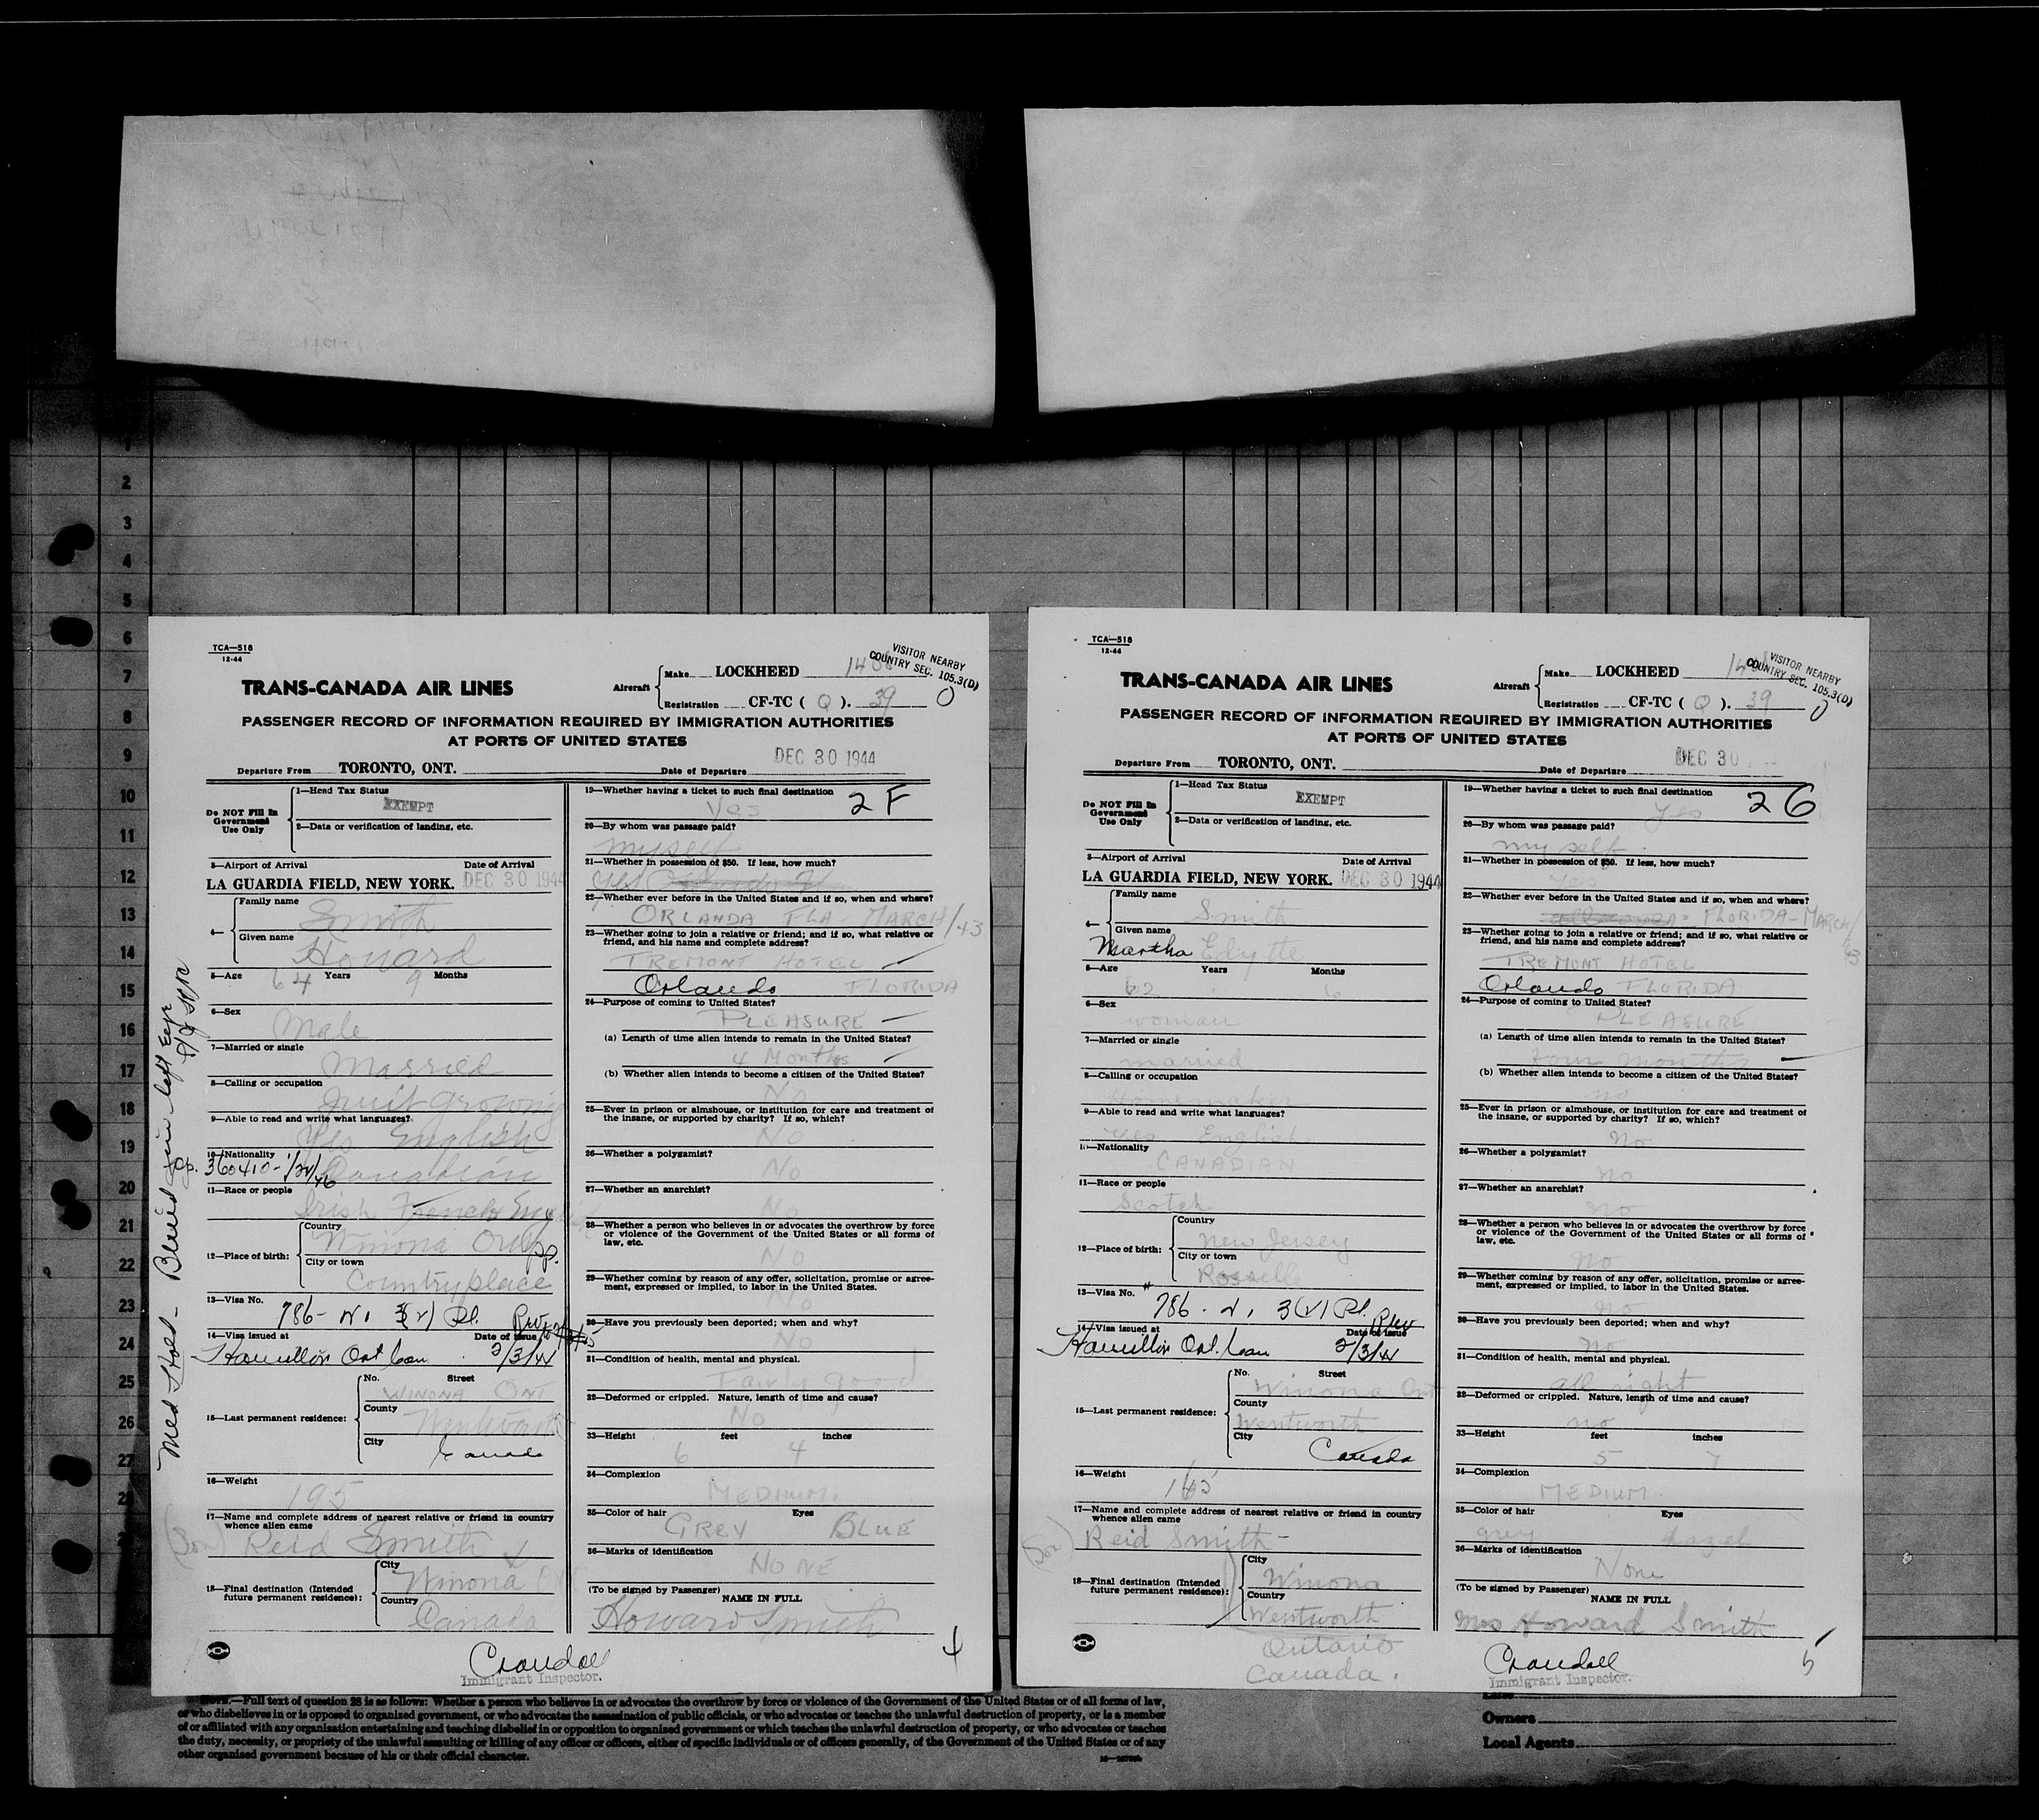 1
2
3
4
5
6
7
8
9
10
11
12
13
14
15
16
17
18
19
20
21
22
23
24
25
26
27
TCA—518
12-44
TRANS-CANADA AIR LINES
Aircraft
Make LOCKHEED
VISITOR NEARBY
COUNTRY SEC. 105.3(D)
Registration CF-TC ( Q ). 39 0
PASSENGER RECORD OF INFORMATION REQUIRED BY IMMIGRATION AUTHORITIES
AT PORTS OF UNITED STATES
DEC 30 1944
Departure From TORONTO, ONT. Date of Departure
Do NOT Fill In
Government
Use Only
1—Head Tax Status
EXEMPT
2—Data or verification of landing, etc.
3—Airport of Arrival Date of Arrival
LA GUARDIA FIELD, NEW YORK. DEC 30 1944
4—
Family name
Smith
Given name
Howard
5—Age 64 Years 9 Months
6—Sex
Male
7—Married or single
Married
8—Calling or occupation
Fruit growing
9—Able to read and write what languages?
Yes English
10—Nationality
360410- Canadian
11—Race or people
Irish French Eng
12—Place of birth:
Country
Winona Ont
City or town
Country place
13—Visa No.
786-
14—Visa issued at Date of issue
Hamilton Ont Can 2/3/44
15—Last permanent residence:
No. Street
WINONA ONT
County
Wentworth
City
Canada
16—Weight
195
17—Name and complete address of nearest relative or friend in country
whence alien came
(Son) Reid Smith
18—Final destination (Intended
future permanent residence):
City
Winona
Country
Canada
Crandall
Immigrant Inspector.
19—Whether having a ticket to such final destination
Yes 2F
20—By whom was passage paid?
myself
21—Whether in possession of $50. If less, how much?
Yes
22—Whether ever before in the United States and if so, when and where?
ORLANDA FLA - MARCH/43
23—Whether going to join a relative or friend; and if so, what relative or
friend, and his name and complete address?
TREMONT HOTEL
Orlando FLORIDA
24—Purpose of coming to United States?
PLEASURE
(a) Length of time alien intends to remain in the United States?
4 Months
(b) Whether alien intends to become a citizen of the United States?
No
25—Ever in prison or almshouse, or institution for care and treatment of
the insane, or supported by charity? If so, which?
No
26—Whether a polygamist?
No
27—Whether an anarchist?
No
28—Whether a person who believes in or advocates the overthrow by force
or violence of the Government of the United States or all forms of
law, etc.
No
29—Whether coming by reason of any offer, solicitation, promise or agree-
ment, expressed or implied, to labor in the United States.
No
30—Have you previously been deported; when and why?
No
31—Condition of health, mental and physical.
Fairly good
32—Deformed or crippled. Nature, length of time and cause?
No
33—Height 6 feet 4 inches
34—Complexion
MEDIUM.
35—Color of hair Eyes
GREY BLUE
36—Marks of identification
NONE
(To be signed by Passenger) NAME IN FULL
Howard Smith
4
TCA—518
12-44
TRANS-CANADA AIR LINES
Aircraft
Make LOCKHEED
VISITOR NEARBY
COUNTRY SEC. 105.3(D)
Registration CF-TC ( Q ). 39 0
PASSENGER RECORD OF INFORMATION REQUIRED BY IMMIGRATION AUTHORITIES
AT PORTS OF UNITED STATES
DEC 30
Departure From TORONTO, ONT. Date of Departure
Do NOT Fill In
Government
Use Only
1—Head Tax Status
EXEMPT
2—Data or verification of landing, etc.
3—Airport of Arrival Date of Arrival
LA GUARDIA FIELD, NEW YORK. DEC 30 1944
4—
Family name
Smith
Given name
Martha Edytte
5—Age Years Months
62 6
6—Sex
woman
7—Married or single
married
8—Calling or occupation
Homemaker
9—Able to read and write what languages?
Yes English
10—Nationality
CANADIAN
11—Race or people
Scotch
12—Place of birth:
Country
New Jersey
City or town
Roselle
13—Visa No.
786-
14—Visa issued at Date of issue
Hamilton Ont. Can 2/3/44
15—Last permanent residence:
No. Street
Winona Ont
County
Wentworth
City
Canada
16—Weight
165
17—Name and complete address of nearest relative or friend in country
whence alien came
(Son) Reid Smith-
18—Final destination (Intended
future permanent residence):
City
Winona
Country
Wentworth
Ontario
Canada.
19—Whether having a ticket to such final destination
yes 2G
20—By whom was passage paid?
my self.
21—Whether in possession of $50. If less, how much?
yes
22—Whether ever before in the United States and if so, when and where?
FLORIDA-MARCH/43
23—Whether going to join a relative or friend; and if so, what relative or
friend, and his name and complete address?
TREMONT HOTEL
Orlando FLORIDA
24—Purpose of coming to United States?
PLEASURE
(a) Length of time alien intends to remain in the United States?
four months
(b) Whether alien intends to become a citizen of the United States?
no
25—Ever in prison or almshouse, or institution for care and treatment of
the insane, or supported by charity? If so, which?
no
26—Whether a polygamist?
no
27—Whether an anarchist?
no
28—Whether a person who believes in or advocates the overthrow by force
or violence of the Government of the United States or all forms of
law, etc.
No
29—Whether coming by reason of any offer, solicitation, promise or agree-
ment, expressed or implied, to labor in the United States.
no
30—Have you previously been deported; when and why?
no
31—Condition of health, mental and physical.
all right
32—Deformed or crippled. Nature, length of time and cause?
no
33—Height feet inches
5 7
34—Complexion
MEDIUM.
35—Color of hair Eyes
grey hazel
36—Marks of identification
None
(To be signed by Passenger) NAME IN FULL
Mrs Howard Smith
Crandall
Immigrant Inspector.
5
Med Hold - Blind in left eye
NOTE.—Full text of question 28 is as follows: Whether a person who believes in or advocates the overthrow by force or violence of the Government of the United States or of all forms of law,
or who disbelieves in or is opposed to organized government, or who advocates the assassination of public officials, or who advocates or teaches the unlawful destruction of property, or is a member
of or affiliated with any organization entertaining and teaching disbelief in or opposition to organized government or which teaches the unlawful destruction of property, or who advocates or teaches
the duty, necessity, or propriety of the unlawful assaulting or killing of any officer or officers, either of specific individuals or of officers generally, of the Government of the United States or of any
other organized government because of his or their official character.
Owners
Local Agents